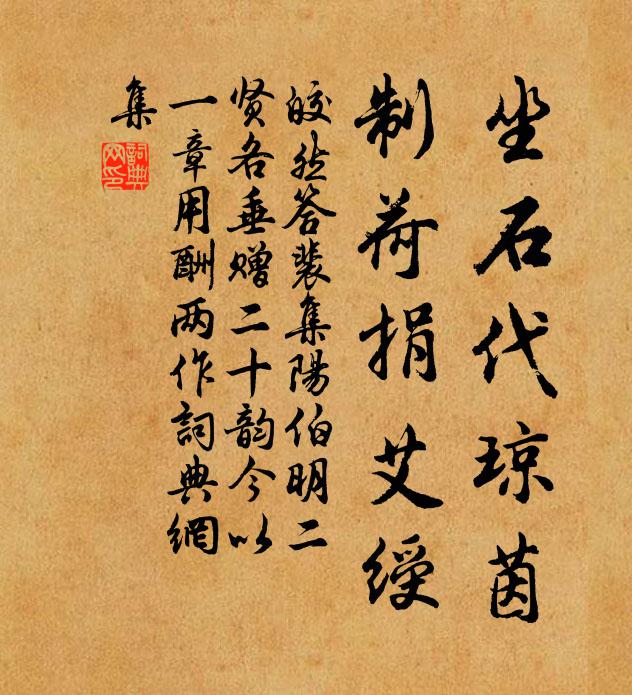 坐石代琼茵
制荷捐艾绶
皎然答裴集陽伯明二
贤各垂赠二十韵今以
一章用酬两作詞典網
集
詞典網印